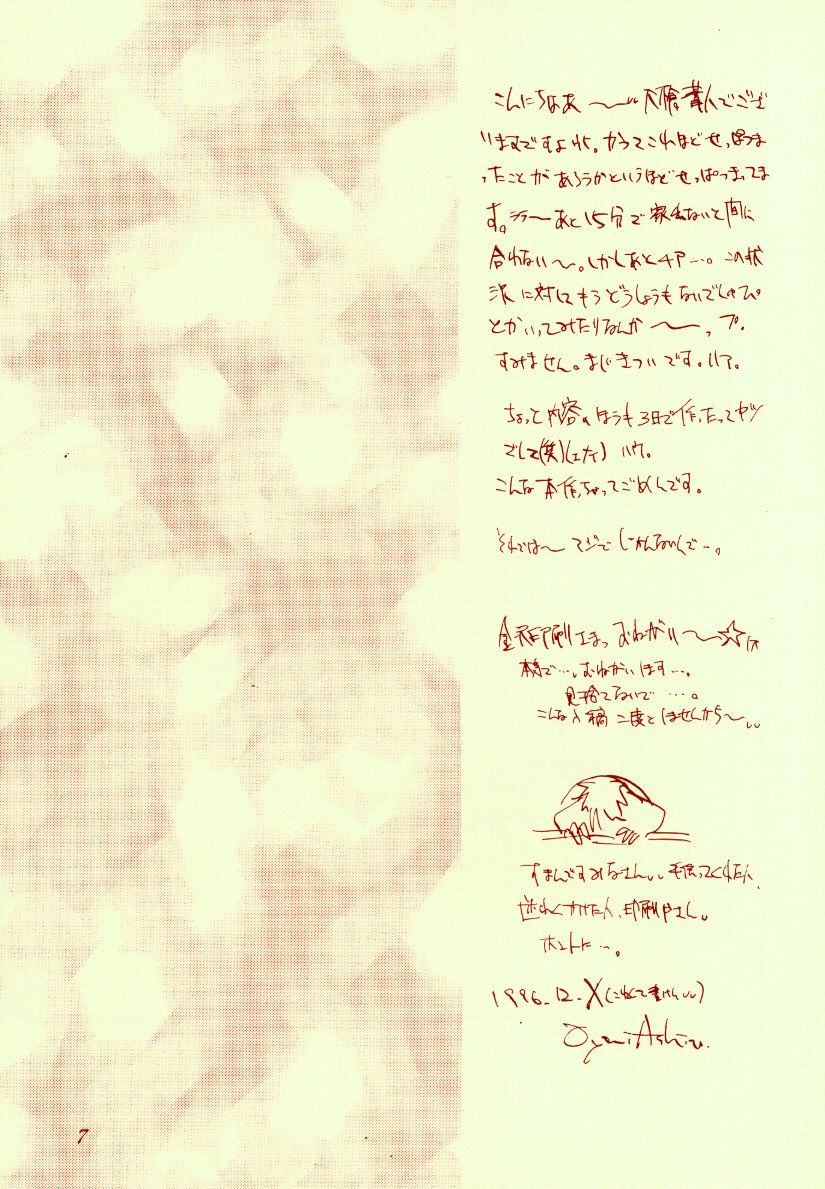 こんにちはあ〜〃 大槍葦人でござ
いますですよ ハイ。かつてこれほどせっぱつま
ったことがあろうかというほどせっぱつまってま
す。ララーあと15分で 家出ないと間に
合わない〜。しかしあと4P…。この状
況に対してもうどうしようもないでしゅぴ
とかいってみたりなんか〜っ プ。
すみません。まじきついです。ハア。
ちょっと内容のほうも3日で作ったってヤツ
でして(笑) ハウ。
こんな本作っちゃってごめんです。
それでは〜 マジで しゃれんないんで…。
金沢印刷さまっ おねがい〜☆
本気で…。おねがいします…。
見捨てないで …。
こんな入稿 二度としませんから〜〃
すまんですみなさん〃 手伝ってくれた人、
迷わくかけた人、印刷屋さん。
ホントに…。
1996.12.X(こわくて書けん〃)
Oyari Ashito.
7